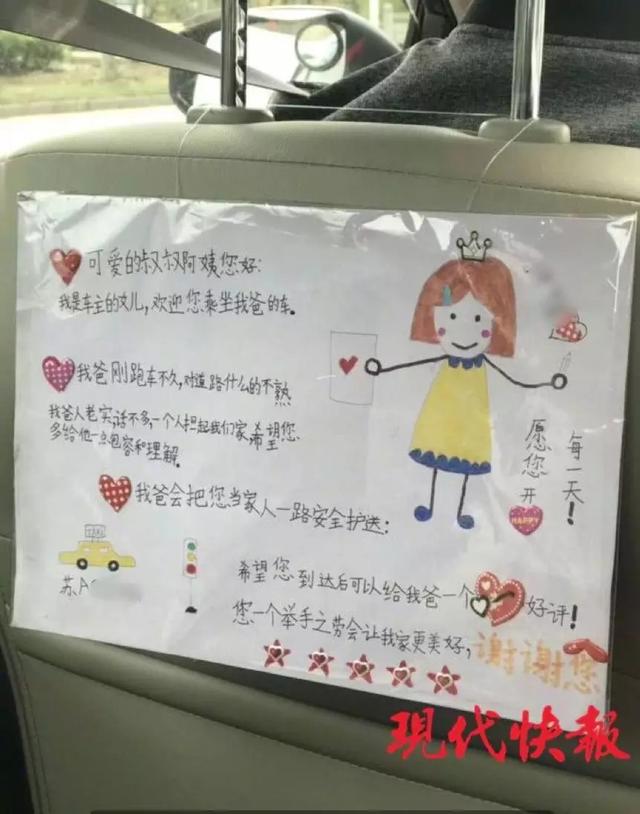 可爱的叔叔阿姨您好:
我是车主的女儿,欢迎您乘坐我爸的车。
我爸刚跑车不久,对道路什么的不熟
我爸人老实,话不多,一个人担起我们家,希望您
多给他一点包容和理解。
我爸会把您当家人一路安全护送:
希望您到达后可以给我爸一个好评!
您一个举手之劳会让我家更美好,谢谢您
愿您开
HAPPY
每一天!
TAXI
苏A
现代快報